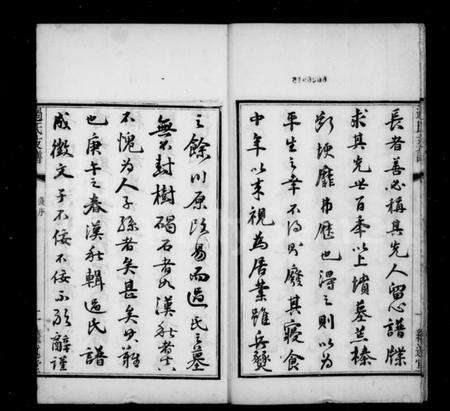 長者善必稱其先人留心譜牒
求其先世百年以上墳墓荒榛
斷埂靡弗歷也得之則以為
平生之幸不得則廢其寢食
中年以來視為居業雖兵燹
之餘川原改易而過氏之墓
無不封樹碣石者如漢能者真
不愧為人子孫者矣甚矣其難
也庚午之春漢能輯過氏譜
成徵文予不佞不佞不敢辭謹
過氏支譜